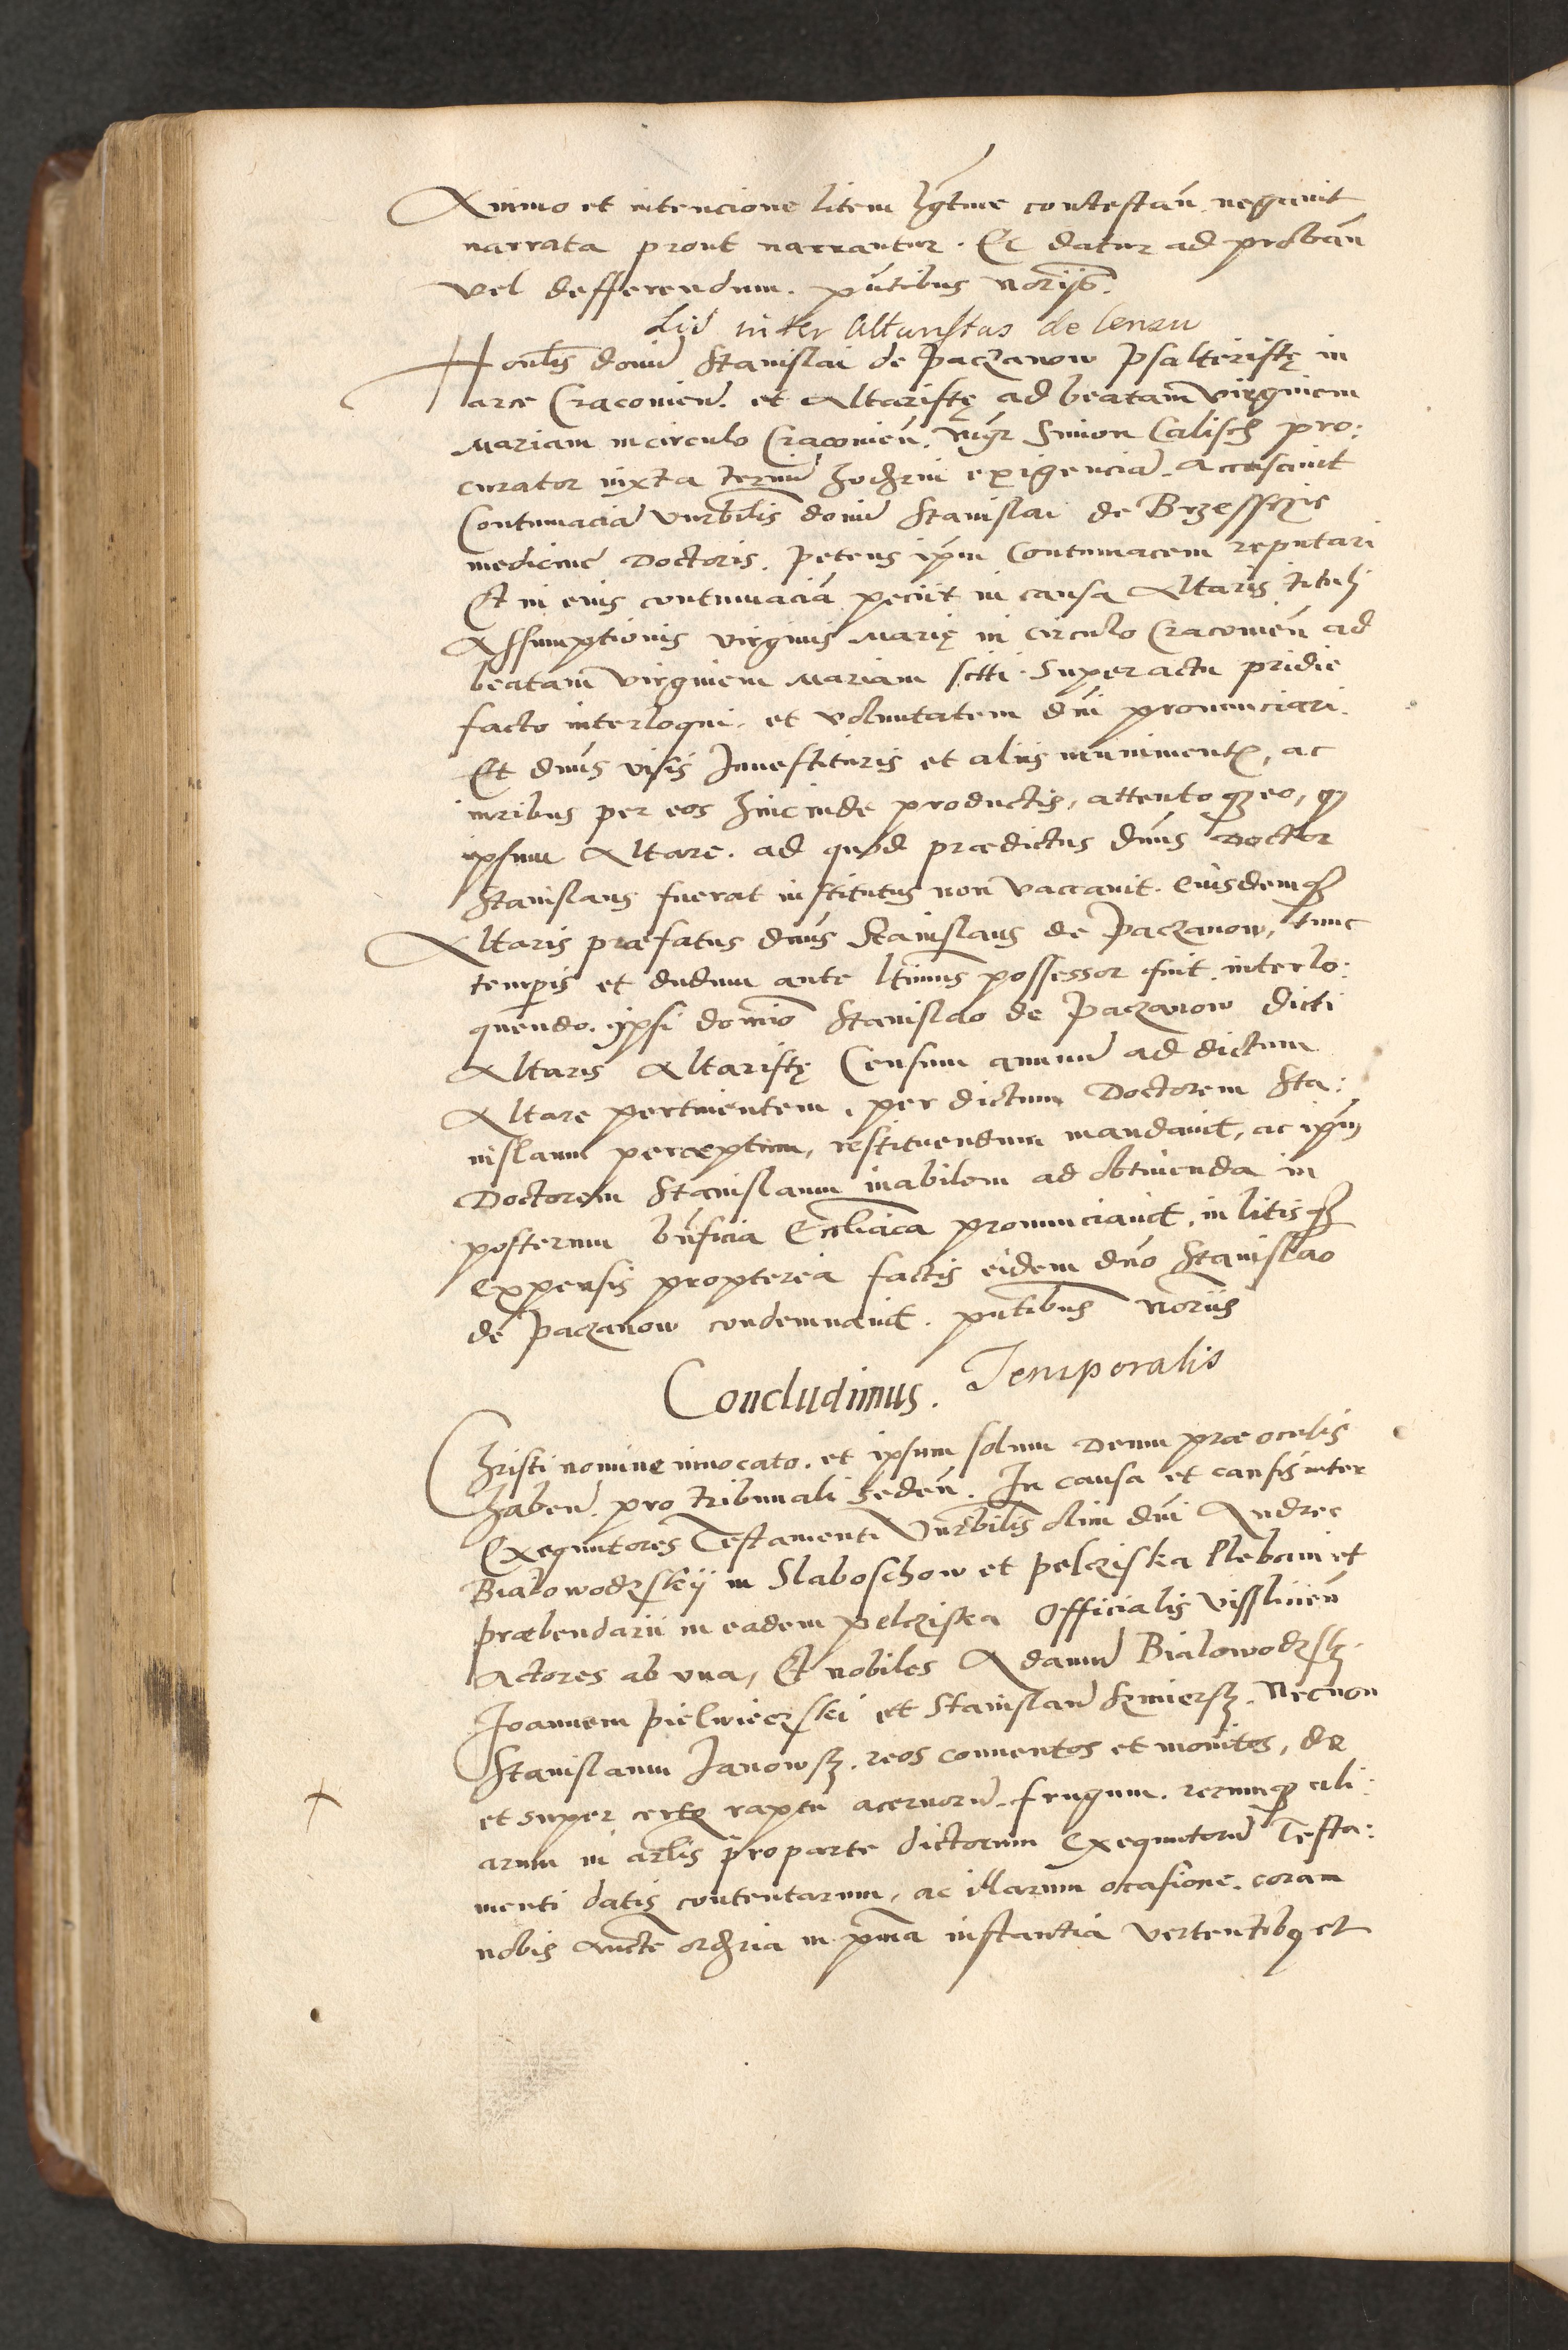 Animo et intencione litem lgtme contestan. negavit
narrata prout narrantur. Et datur ad proban
vel defferendum. pntibus noriis.
Lis inter Altaristas de Censu
Honlis domi Stanislai de Paczanow Psalteristę in
arce Cracovien. et Altaristę ad beatam virginem
Mariam in circulo Cracovien. Mgr Simon Calisch pro:
curator iuxta termi hodrni exigencia. accusavit
Contumacia vnrbilis domi Stanislai de Brzesscze
medicine Doctoris. petens ipm Contumacem reputari
Et in eius contumacia peciit in causa Altaris tituli
Assumptionis virginis Marię in circulo Cracovien ad
beatam virginem Mariam sitti. Super actu pridie
facto interloqui. et voluntatem dni pronunciari.
Et dnus visis Investituris et aliis munimentis, ac
iuribus per eos hincinde productis, attentoque eo, quod
ipsum Altare. ad quod prædictus dnus Doctor
Stanislaus fuerat institutus non vaccavit. Eiusdemque
Altaris præfatus dnus Stanislaus de Paczanow, tunc
tempis et dudum ante ltimus possessor fuit. interlo:
quendo. ipsi domio Stanislao de Paczanow dicti
Altaris Altaristę Censum annuu ad dictum
Altare pertinentem. per dictum Doctorem Sta:
nislaum perceptum, restituendum mandavit, ac ipm
Doctorem Stanislaum inabilem ad obtinenda in
posterum bnficia Ecclliaca pronunciavit. in litisque
expensis propterea factis eidem dno Stanislao
de Paczanow condemnavit. pntibus noriis
Concludimus. Temporalis
Christi nomine invocato. et ipsum solum Deum præ oculis
haben. pro tribunali seden. In causa et causis inter
Exequutores Testamenti Vnrbilis olim dni Andree
Bialowodzskij in Slaboschow et Pelcziska Plebani et
præbendarii in eadem Pelcziska Officialis vislicien
Actores ab vna, Et nobiles Adamu Bialowodzsky.
Joannem Pielwieczski et Stanislau Szmiersky. Necnon
Stanislaum Janowsky. reos conventos et monitos, de
et super certo raptu acervoru. frugum. rerumque ali:
arum in artlis pro parte dictorum Exequutoru Testa:
menti datis contentarum, ac illarum ocasione. coram
nobis aucte ordria in pma instantia vertentibus et